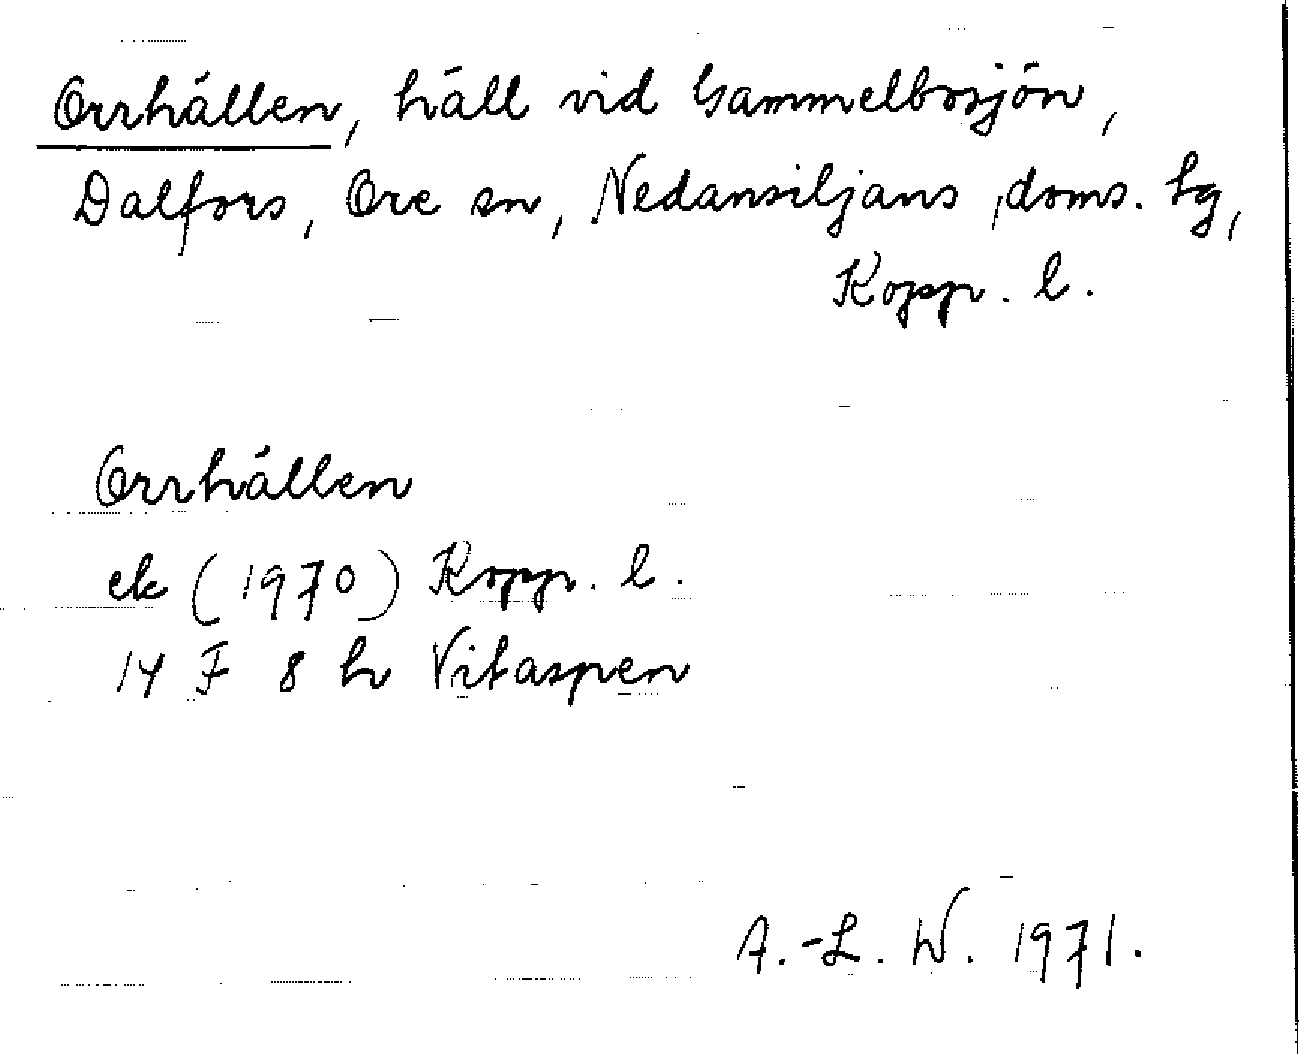 Orrhällen, häll vid Gammelbosjön,
Dalfors, Ore sn, Nedansiljans doms. tg,
Kopp. l.
Orrhällen
ek (1970) Kopp. l.
14 F 8 h Vitaspen
A.-L. W. 1971.